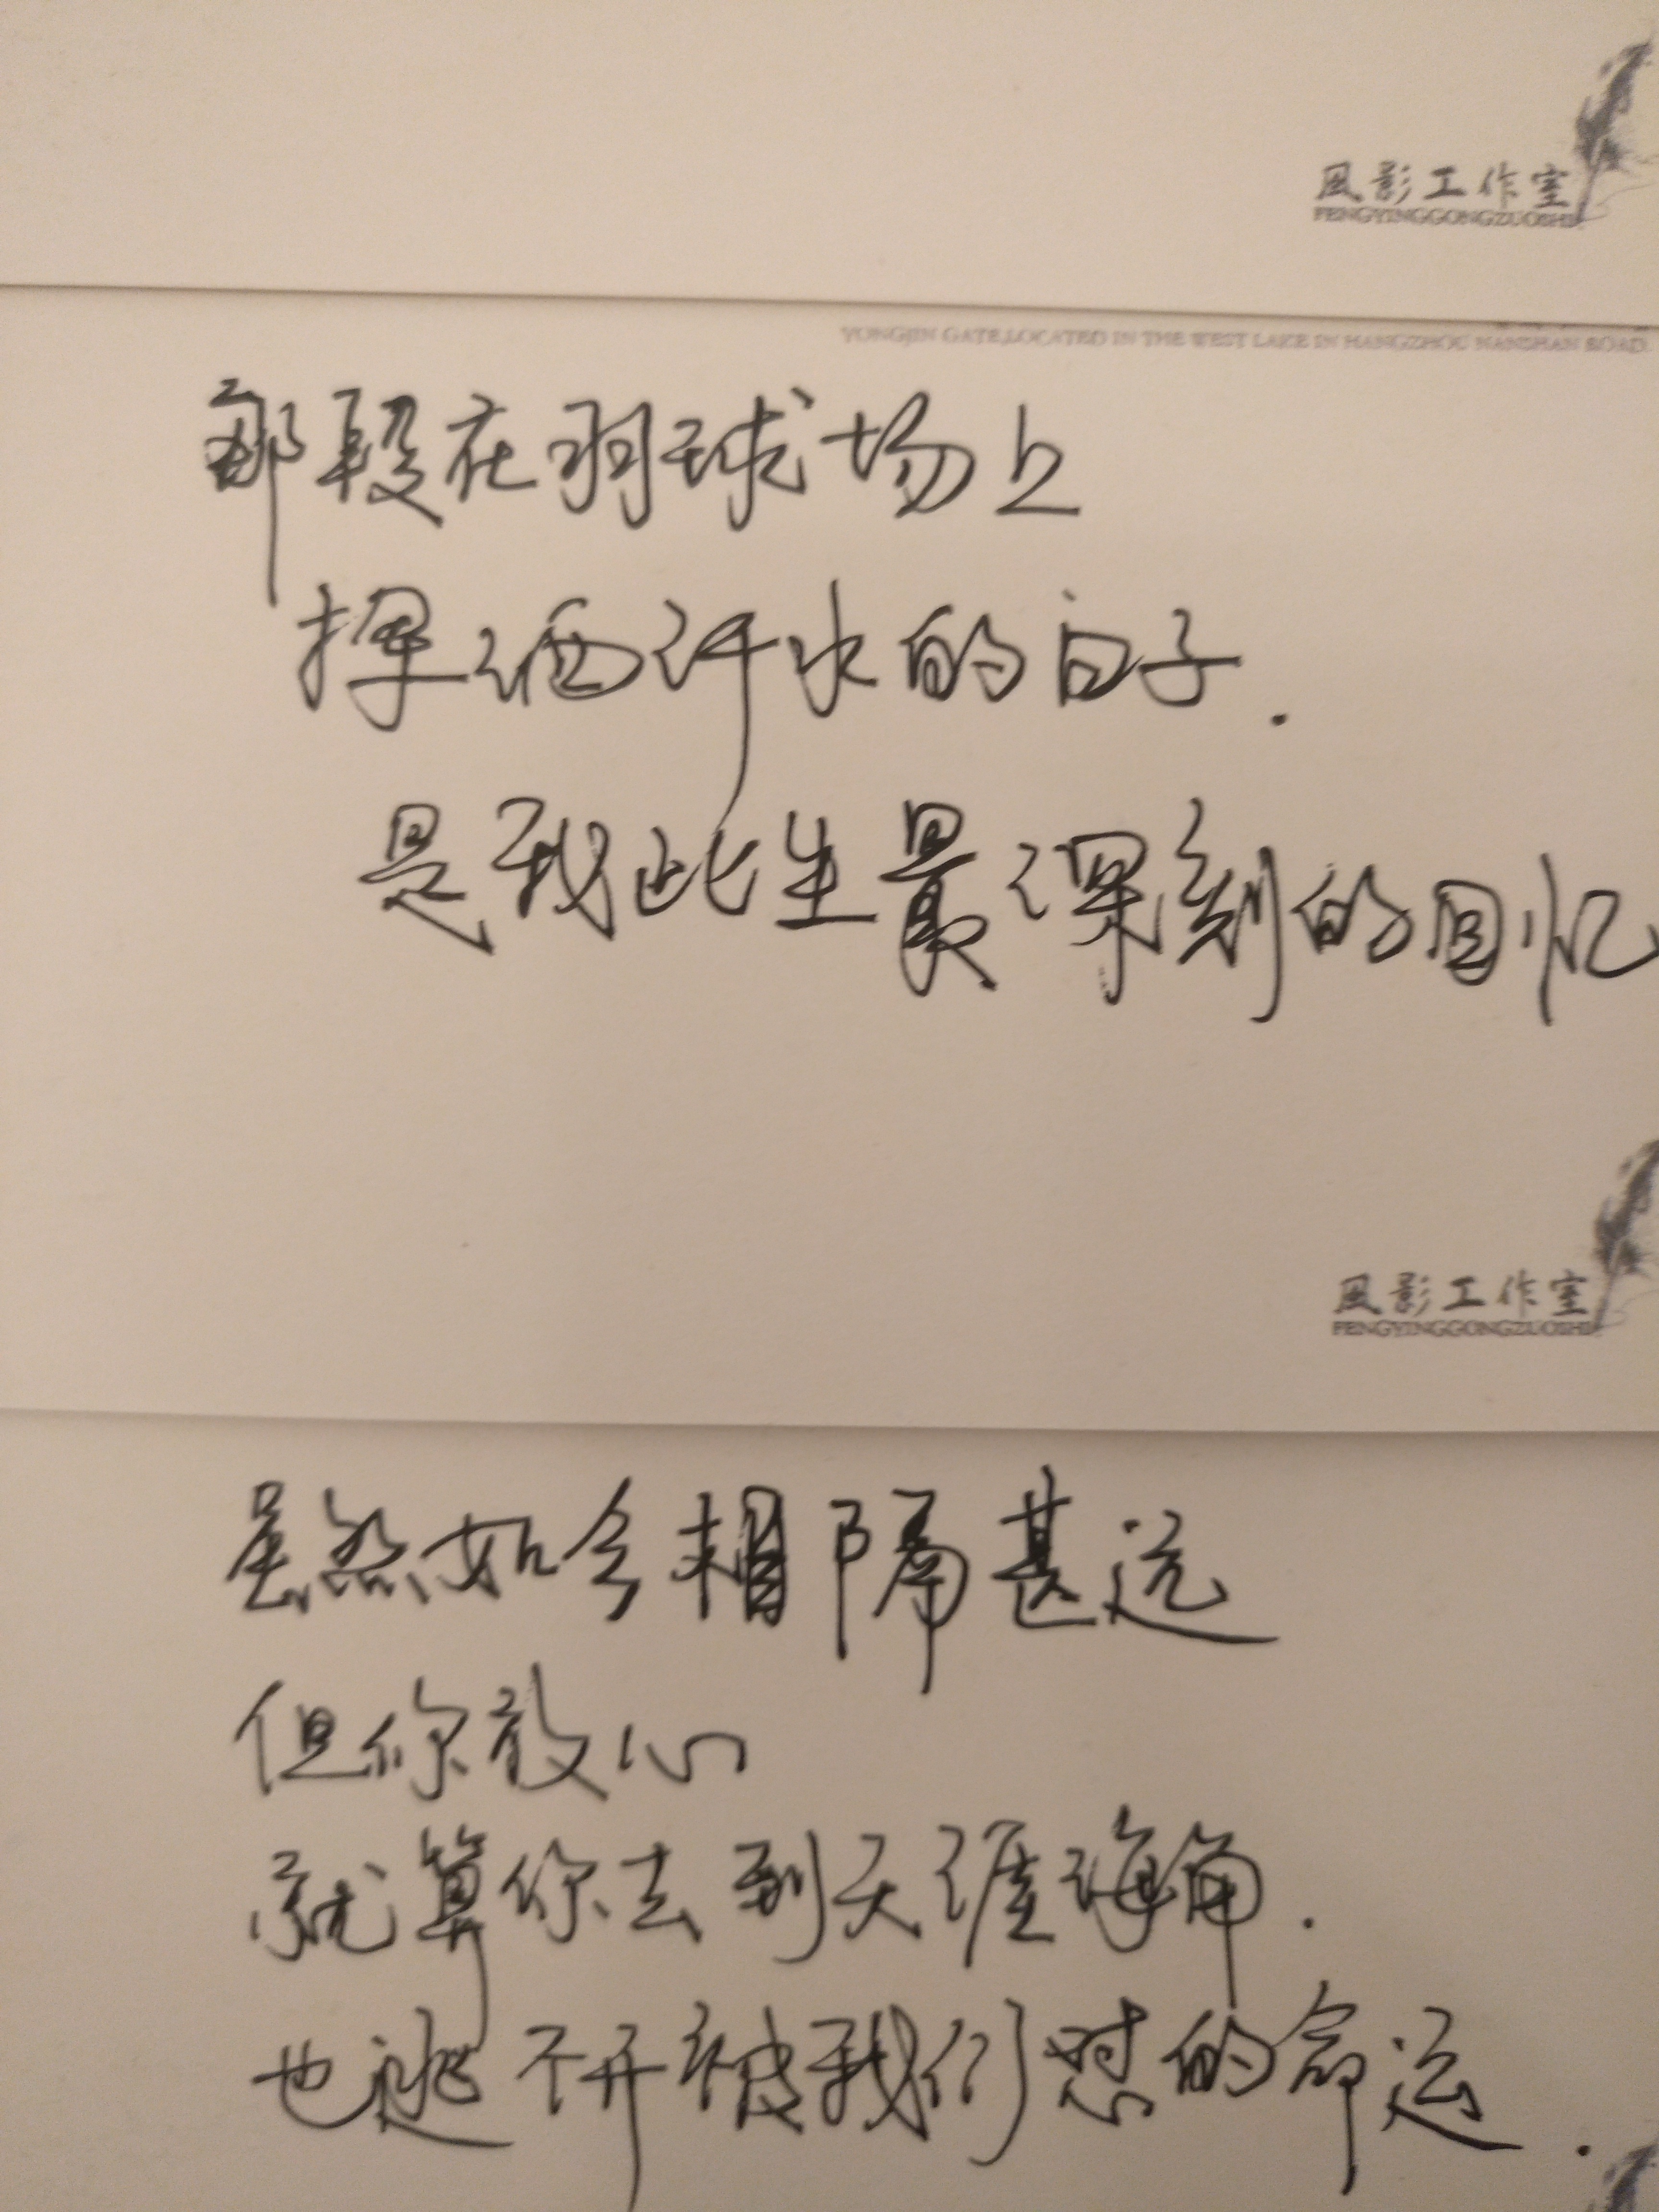 風影工作室
FENGYINGGONGZUOSHI
YONGJIN GATE,LOCATED IN THE WEST LAKE IN HANGZHOU NANSHAN ROAD.
那段在羽球场上
挥洒汗水的日子.
是我此生最深刻的回忆
風影工作室
FENGYINGGONGZUOSHI
虽然如今相隔甚远
但你放心
就算你去到天涯海角.
也逃不开被我们怼的命运.